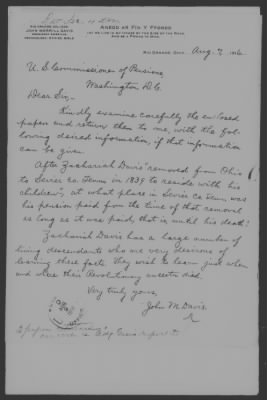 RIO GRANDE COLLEGE
JOHN MERRILL DAVIS
ANGEO AR FIN Y FFORDD
RIO GRANDE, OHIO, Aug. 7, 1916
U. S. Commissioner of Pensions,
Washington D.C.
Dear Sir,-
Kindly examine carefully the enclosed
paper and return then to me, with the fol-
lowing desired information, if that information
can be given.
After Zachariah Davis "removed from Ohio
to Sevier co. Tenn in 1839 to reside with his
children", at what place in Sevier co Tenn was
his pension paid from the time of that removal
as long as it was paid, that is until his death?
Zachariah Davis has a large number of
living descendants who are very desirous of
learning these facts. They wish to learn just when
and where their Revolutionary ancestor died.
Very truly yours,
John M. Davis